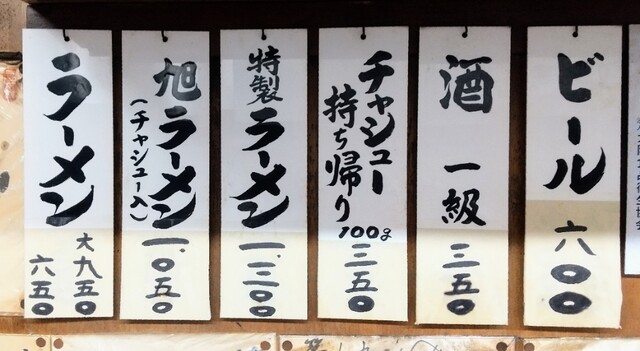 ビール
六〇〇
酒 一級
三五〇
チャシュー
持ち帰り
100g
三五〇
特製
ラーメン
一、三〇〇
旭ラーメン
(チャシュー入)
一、〇五〇
ラーメン
大九五〇
六五〇